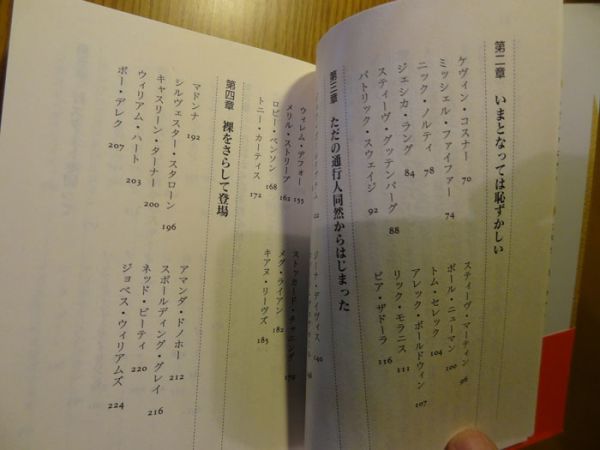 第二章　いまとなっては恥ずかしい
ケヴィン・コスナー 70
ミッシェル・ファイファー 74
ニック・ノルティ 78
ジェシカ・ラング 84
スティーヴ・グッテンバーグ 88
パトリック・スウェイジ 92
スティーヴ・マーティン 96
ポール・ニューマン 100
トム・セレック 104
アレック・ボールドウィン 107
リック・モラニス 111
ピア・ザドーラ 116
第三章　ただの通行人同然からはじまった
ジーナ・デイヴィス 140
ウィレム・デフォー 155
メリル・ストリープ 162
ロビー・ベンソン 168
トニー・カーティス 172
ストッカード・チャニング 179
メグ・ライアン 182
キアヌ・リーヴズ 185
第四章　裸をさらして登場
マドンナ 192
シルヴェスター・スタローン 196
キャスリーン・ターナー 200
ウィリアム・ハート 203
ボー・デレク 207
アマンダ・ドノホー 212
スポールディング・グレイ 216
ネッド・ビーティ 220
ジョベス・ウィリアムズ 224